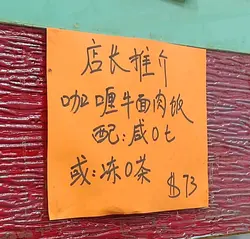 店长推介
咖喱牛面肉饭
配:咸0t
或:冻0茶
$73